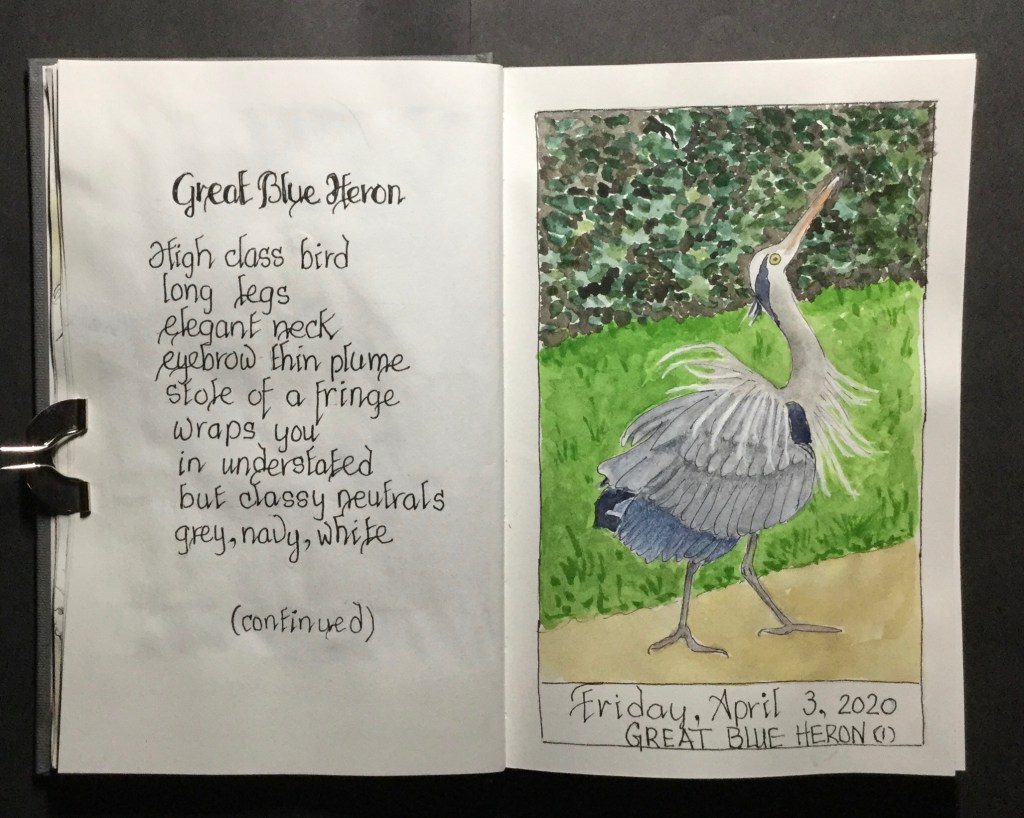 Great Blue Heron
High class bird
long legs
elegant neck
eyebrow thin plume
stole of a fringe
wraps you
in understated
but classy neutrals
grey, navy, white
(continued)
Friday, April 3, 2020
GREAT BLUE HERON (1)